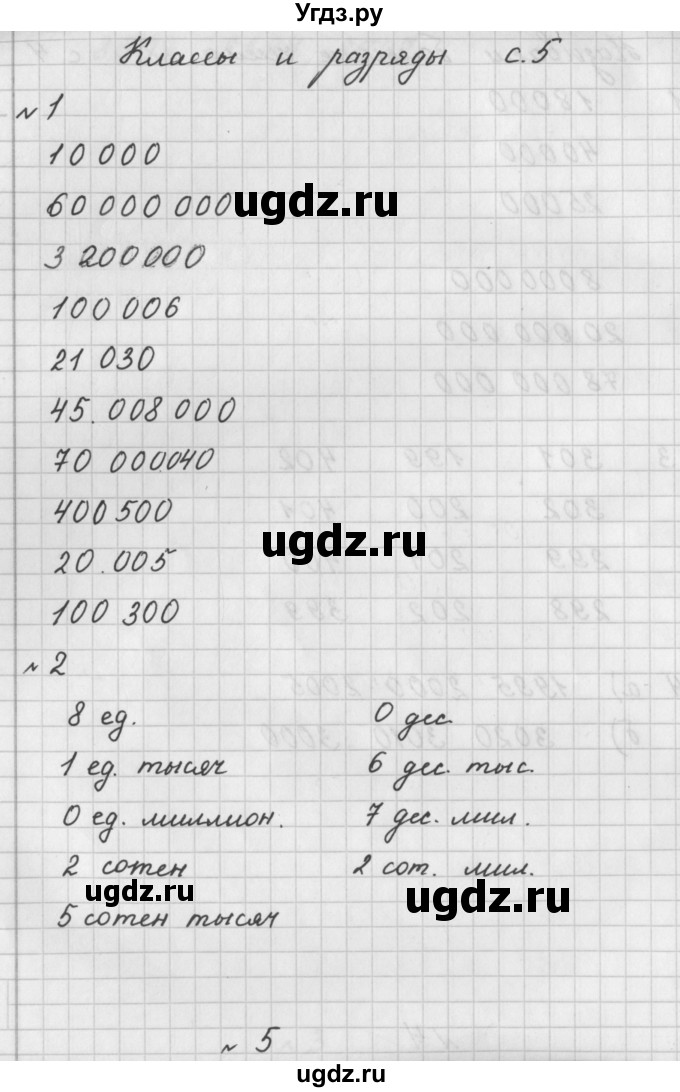 Угдз.ру
Классы и разряды с.5
№ 1
10 000
60 000 000 ugdz.ru
3 200 000
100 006
21 030
45.008 000
70 000040
400 500
ugdz.ru
20.005
100 300
№ 2
8 ед. 0 дес.
1 ед. тысяч 6 дес. тыс.
0 ед. миллион. 7 дес. мил.
2 сотен 2 сот. мил.
ugdz.ru ugdz.ru
5 сотен тысяч
№ 5
ugdz.ru